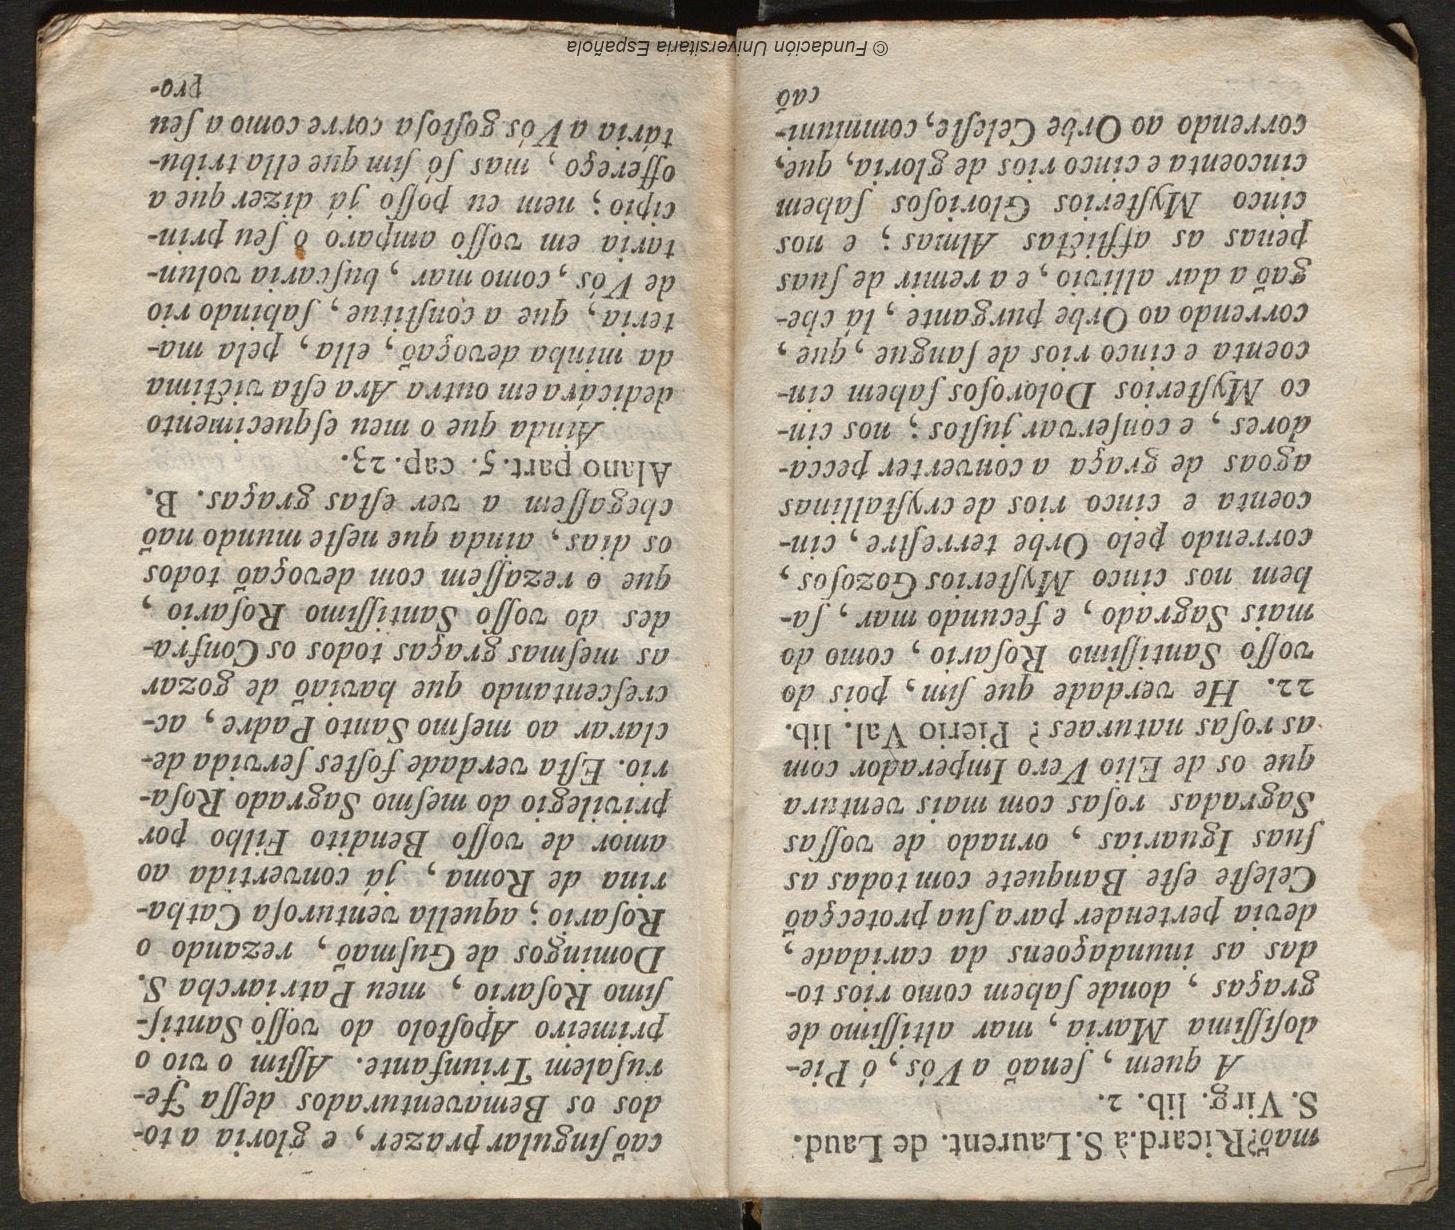 maõ? Ricard. à S. Laurent. de Laud.
S. Virg. lib. 2.
A quem, ſenaõ a Vós, ó Pie-
doſiſſima Maria, mar altiſſimo de
graças, donde ſahem como rios to-
das as inundaçoens da caridade,
devia pertender para ſua protecçaõ
Celeſte eſte Banquete com todas as
ſuas Iguarias, ornado de voſſas
Sagradas roſas com mais ventura
que os de Elio Vero Imperador com
as roſas naturaes? Pierio Val. lib.
22. He verdade que ſim, pois do
voſſo Santiſſimo Roſario, como do
mais Sagrado, e fecundo mar, ſa-
hem nos cinco Myſterios Gozoſos,
correndo pelo Orbe terreſtre, cin-
coenta e cinco rios de cryſtallinas
agoas de graça a converter pecca-
dores, e conſervar juſtos; nos cin-
co Myſterios Doloroſos ſahem cin-
coenta e cinco rios de ſangue, que,
correndo ao Orbe purgante, lá che-
gaõ a dar allivio, e a remir de ſuas
penas as afflictas Almas; e nos
cinco Myſterios Glorioſos ſahem
cincoenta e cinco rios de gloria, que,
correndo ao Orbe Celeſte, communi-
caõ
caõ ſingular prazer, e gloria a to-
dos os Bemaventurados deſſa Je-
ruſalem Triunfante. Aſſim o vio o
primeiro Apoſtolo do voſſo Santiſ-
ſimo Roſario, meu Patriarcha S.
Domingos de Guſmaõ, rezando o
Roſario; aquella venturoſa Catha-
rina de Roma, já convertida ao
amor de voſſo Bendito Filho por
privilegio do meſmo Sagrado Roſa-
rio. Eſta verdade foſtes ſervida de-
clarar ao meſmo Santo Padre, ac-
creſcentando que haviaõ de gozar
as meſmas graças todos os Confra-
des do voſſo Santiſſimo Roſario,
que o rezaſſem com devoçaõ todos
os dias, ainda que neſte mundo naõ
chegaſſem a ver eſtas graças. B.
Alano part. 5. cap. 23.
Ainda que o meu eſquecimento
dedicára em outra Ara eſta victima
da minha devoçaõ, ella, pela ma-
teria, que a conſtitue, ſahindo rio
de Vós, como mar, buſcaria volun-
taria em voſſo amparo o ſeu prin-
cipio; nem eu poſſo já dizer que a
offereço, mas ſó ſim que ella tribu-
tária a Vós goſtoſa corre como a ſeu
pro-
© Fundación Universitaria Española